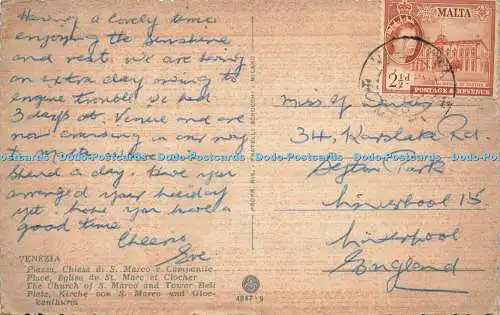 Having a lovely time
enjoying the sunshine
and rest. We are having
an extra day owing to
engine trouble. We had
3 days at Venice and are
now cruising on our way
to
a day. Have you
arranged your holiday
yet. hope you have a
good time.
Cheerio
VENEZIA
Piazza, Chiesa di S. Marco e Campanile
Place, Eglise de St. Marc et Clocher
The Church of S. Marco and Tower Bell
Platz, Kirche von S. Marco und Gloc-
kenthurm
4847-9
MALTA
2½d
POSTAGE & REVENUE
Miss
34, Karslake Rd.
Sefton Park
Liverpool 15
Liverpool
England
Dodo-Postcards Dodo-Postcards Dodo-Postcards Dodo-Postcards Dodo-Postcards Dodo-Postcards